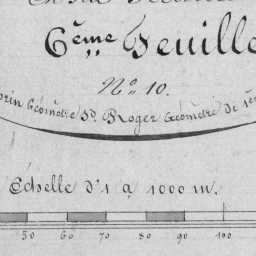 6ème Feuille
No 10.
Géomètre Sr. Roger Géomètre de 1ère
Échelle d'1 à 1000 m.
50 60 70 80 90 100